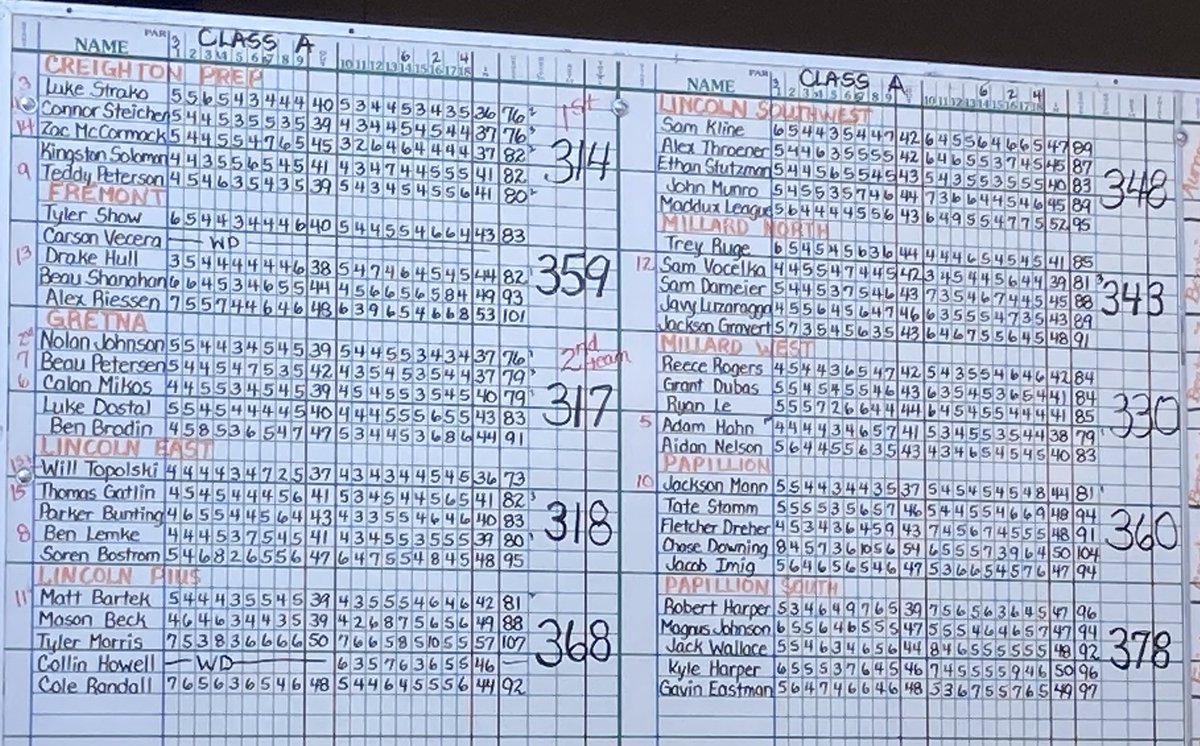 NAME PAR CLASS A
CREIGHTON PREP
3 Luke Strako 5 5 6 5 4 3 4 4 4 40 5 3 4 4 5 3 4 3 5 36 76 1st
Connor Steichen 5 4 4 5 3 5 5 3 5 39 4 3 4 4 5 4 5 4 4 37 76
14 Zac McCormack 5 4 4 5 5 4 7 6 5 45 3 2 6 4 6 4 4 4 4 37 82 314
Kingston Solomon 4 4 3 5 5 6 5 4 5 41 4 3 4 7 4 4 5 5 5 41 82
9 Teddy Peterson 4 5 4 6 3 5 4 3 5 39 5 4 3 4 5 4 5 5 6 41 80
FREMONT
Tyler Show 6 5 4 4 3 4 4 4 6 40 5 4 4 5 5 4 6 6 4 43 83
Carson Vecera WD
13 Drake Hull 3 5 4 4 4 4 4 4 6 38 5 4 7 4 6 4 5 4 5 44 82 359
Beau Shanahan 6 6 4 5 3 4 6 5 5 44 4 5 6 6 5 6 5 8 4 49 93
Alex Riessen 7 5 5 7 4 4 6 4 6 48 6 3 9 6 5 4 6 6 8 53 101
GRETNA
2nd Nolan Johnson 5 5 4 4 3 4 5 4 5 39 5 4 4 5 5 3 4 3 4 37 76 2nd team
7 Beau Petersen 5 4 4 5 4 7 5 3 5 42 4 3 5 4 5 3 5 4 4 37 79
6 Calan Mikos 4 4 5 5 3 4 5 4 5 39 4 5 4 5 5 3 5 4 5 40 79 317
Luke Dostal 5 5 4 5 4 4 4 4 5 40 4 4 4 5 5 5 6 5 5 43 83
Ben Brodin 4 5 8 5 3 6 5 4 7 47 5 3 4 4 5 3 6 8 6 44 91
LINCOLN EAST
1st Will Topolski 4 4 4 4 3 4 7 2 5 37 4 3 4 3 4 4 5 4 5 36 73
15 Thomas Gatlin 4 5 4 5 4 4 4 5 6 41 5 3 4 5 4 4 5 6 5 41 82
Parker Bunting 4 6 5 5 4 4 5 6 4 43 4 3 3 5 5 4 6 4 6 40 83 318
8 Ben Lemke 4 4 4 5 3 7 5 4 5 41 4 3 4 5 5 3 5 5 5 39 80
Soren Bostrom 5 4 6 8 2 6 5 5 6 47 6 4 7 5 5 4 8 4 5 48 95
LINCOLN PIUS
11 Matt Bartek 5 4 4 4 3 5 5 4 5 39 4 3 5 5 5 4 6 4 6 42 81
Mason Beck 4 6 4 6 3 4 4 3 5 39 4 2 6 8 7 5 6 5 6 49 88 368
Tyler Morris 7 5 3 8 3 6 6 6 6 50 7 6 6 5 8 5 10 5 5 57 107
Collin Howell WD 6 3 5 7 6 3 6 5 5 46
Cole Randall 7 6 5 6 3 6 5 4 6 48 5 4 4 6 4 5 5 5 6 44 92
NAME PAR CLASS A
LINCOLN SOUTHWEST
Sam Kline 6 5 4 4 3 5 4 4 7 42 6 4 5 5 6 4 6 6 5 47 89
Alex Throener 5 4 4 6 3 5 5 5 5 42 6 4 6 5 5 3 7 4 5 45 87
Ethan Stutzman 5 4 4 5 6 5 5 4 5 43 5 4 3 5 5 3 5 5 5 40 83 348
John Munro 5 4 5 5 3 5 7 4 6 44 7 3 6 6 4 4 5 4 6 45 89
Maddux League 5 6 4 4 4 4 5 5 6 43 6 4 9 5 5 4 7 7 5 52 95
MILLARD NORTH
Trey Ruge 6 5 4 5 4 5 6 3 6 44 4 4 4 6 5 4 5 4 5 41 85
12 Sam Vocelka 4 4 5 5 4 7 4 4 5 42 3 4 5 4 4 5 6 4 4 39 81 343
Sam Dameier 5 4 4 5 3 7 5 4 6 43 7 3 5 4 6 7 4 4 5 45 88
Javy Luzaragga 4 5 5 6 4 5 6 4 7 46 6 3 5 5 5 4 7 3 5 43 89
Jackson Gravert 5 7 3 5 4 5 6 3 5 43 6 4 6 7 5 5 6 4 5 48 91
MILLARD WEST
Reece Rogers 4 5 4 4 3 6 5 4 7 42 5 4 3 5 5 4 6 4 6 42 84
Grant Dubas 5 5 4 5 4 5 5 4 6 43 6 3 5 4 5 3 6 5 4 41 84
Ryan Le 5 5 5 7 2 6 6 4 4 44 6 4 5 4 5 5 4 4 4 41 85 330
5 Adam Hohn 4 4 4 4 3 4 6 5 7 41 5 3 4 5 5 3 5 4 4 38 79
Aidan Nelson 5 6 4 4 5 5 6 3 5 43 4 3 4 6 5 4 5 4 5 40 83
PAPILLION
10 Jackson Mann 5 5 4 4 3 4 4 3 5 37 5 4 5 4 5 4 5 4 8 44 81
Tate Stamm 5 5 5 5 3 5 6 5 7 46 5 4 4 5 5 4 6 6 9 48 94
Fletcher Dreher 4 5 3 4 3 6 4 5 9 43 7 4 5 6 7 4 5 5 5 48 91 360
Chase Downing 8 4 5 7 3 6 10 5 6 54 6 5 5 5 7 3 9 6 4 50 104
Jacob Imig 5 6 4 6 5 6 5 4 6 47 5 3 6 6 5 4 5 7 6 47 94
PAPILLION SOUTH
Robert Harper 5 3 4 6 4 9 7 6 5 39 7 5 6 5 6 3 6 4 5 47 96
Magnus Johnson 6 5 5 6 4 6 5 5 5 47 5 5 5 4 6 4 6 5 7 47 94
Jack Wallace 5 5 4 6 3 4 6 5 6 44 8 4 6 5 5 5 5 5 5 48 92 378
Kyle Harper 6 5 5 5 3 7 6 4 5 46 7 4 5 5 5 5 9 4 6 50 96
Gavin Eastman 5 6 4 7 4 6 6 4 6 48 5 3 6 7 5 5 7 6 5 49 97